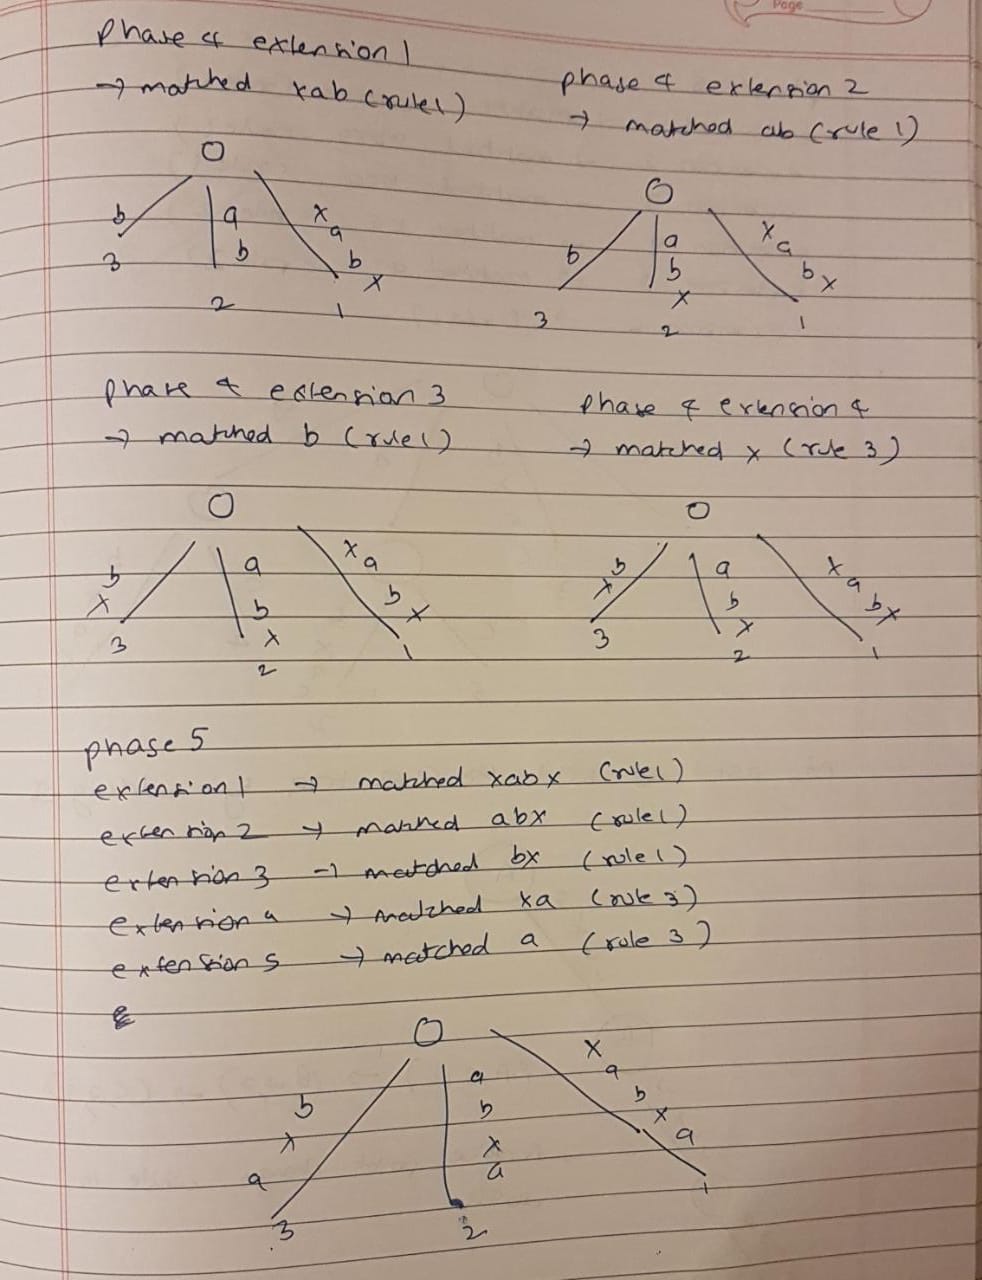 Page
Phase 4 extension 1
→ matched xab (rule 1)
O
b
3
a
b
2
x
a
b
x
1
phase 4 extension 2
→ matched ab (rule 1)
O
b
3
a
b
x
2
x
a
b
x
1
phase 4 extension 3
→ matched b (rule 1)
O
b
x
3
a
b
x
2
x
a
b
x
1
phase 4 extension 4
→ matched x (rule 3)
O
b
x
3
a
b
x
2
x
a
b
x
1
phase 5
extension 1 → matched xabx (rule 1)
extension 2 → matched abx (rule 1)
extension 3 → matched bx (rule 1)
extension 4 → matched xa (rule 3)
extension 5 → matched a (rule 3)
O
b
x
a
3
a
b
x
a
2
x
a
b
x
a
1